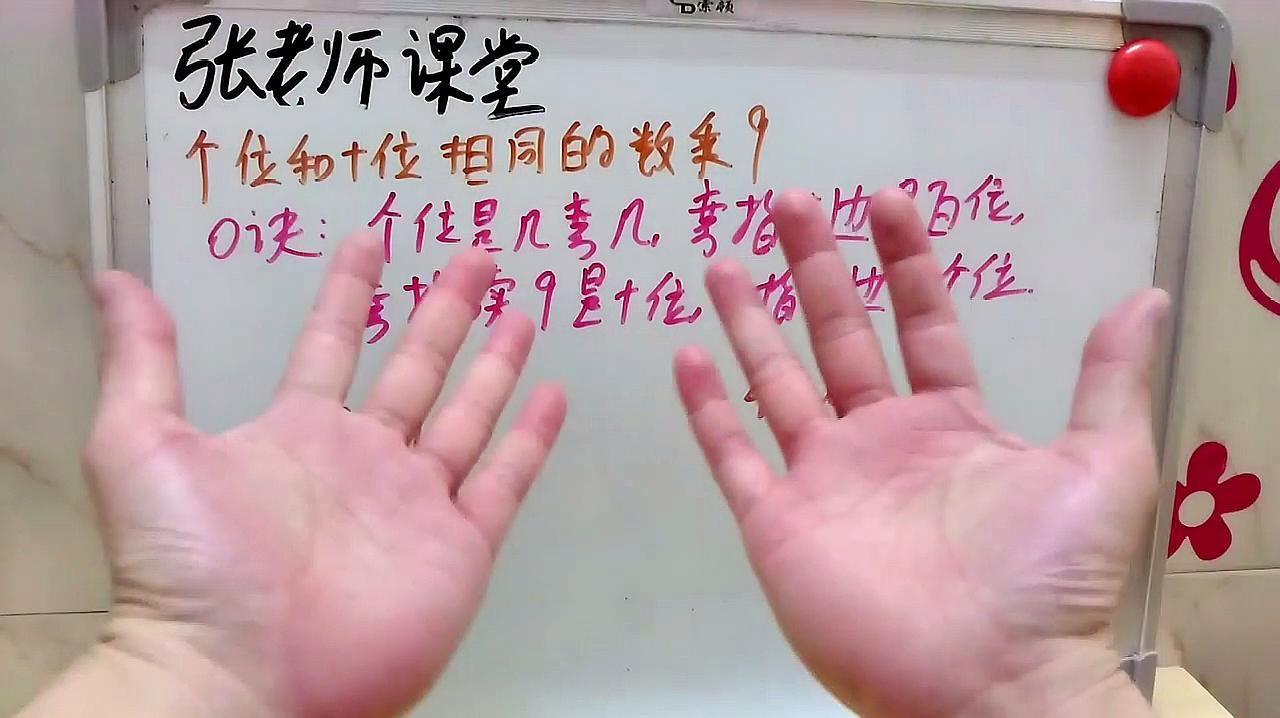 张老师课堂
个位和十位相同的数乘9
口诀：个位是几弯几，弯指 边 百位，
弯 9是十位， 指 边 个位.